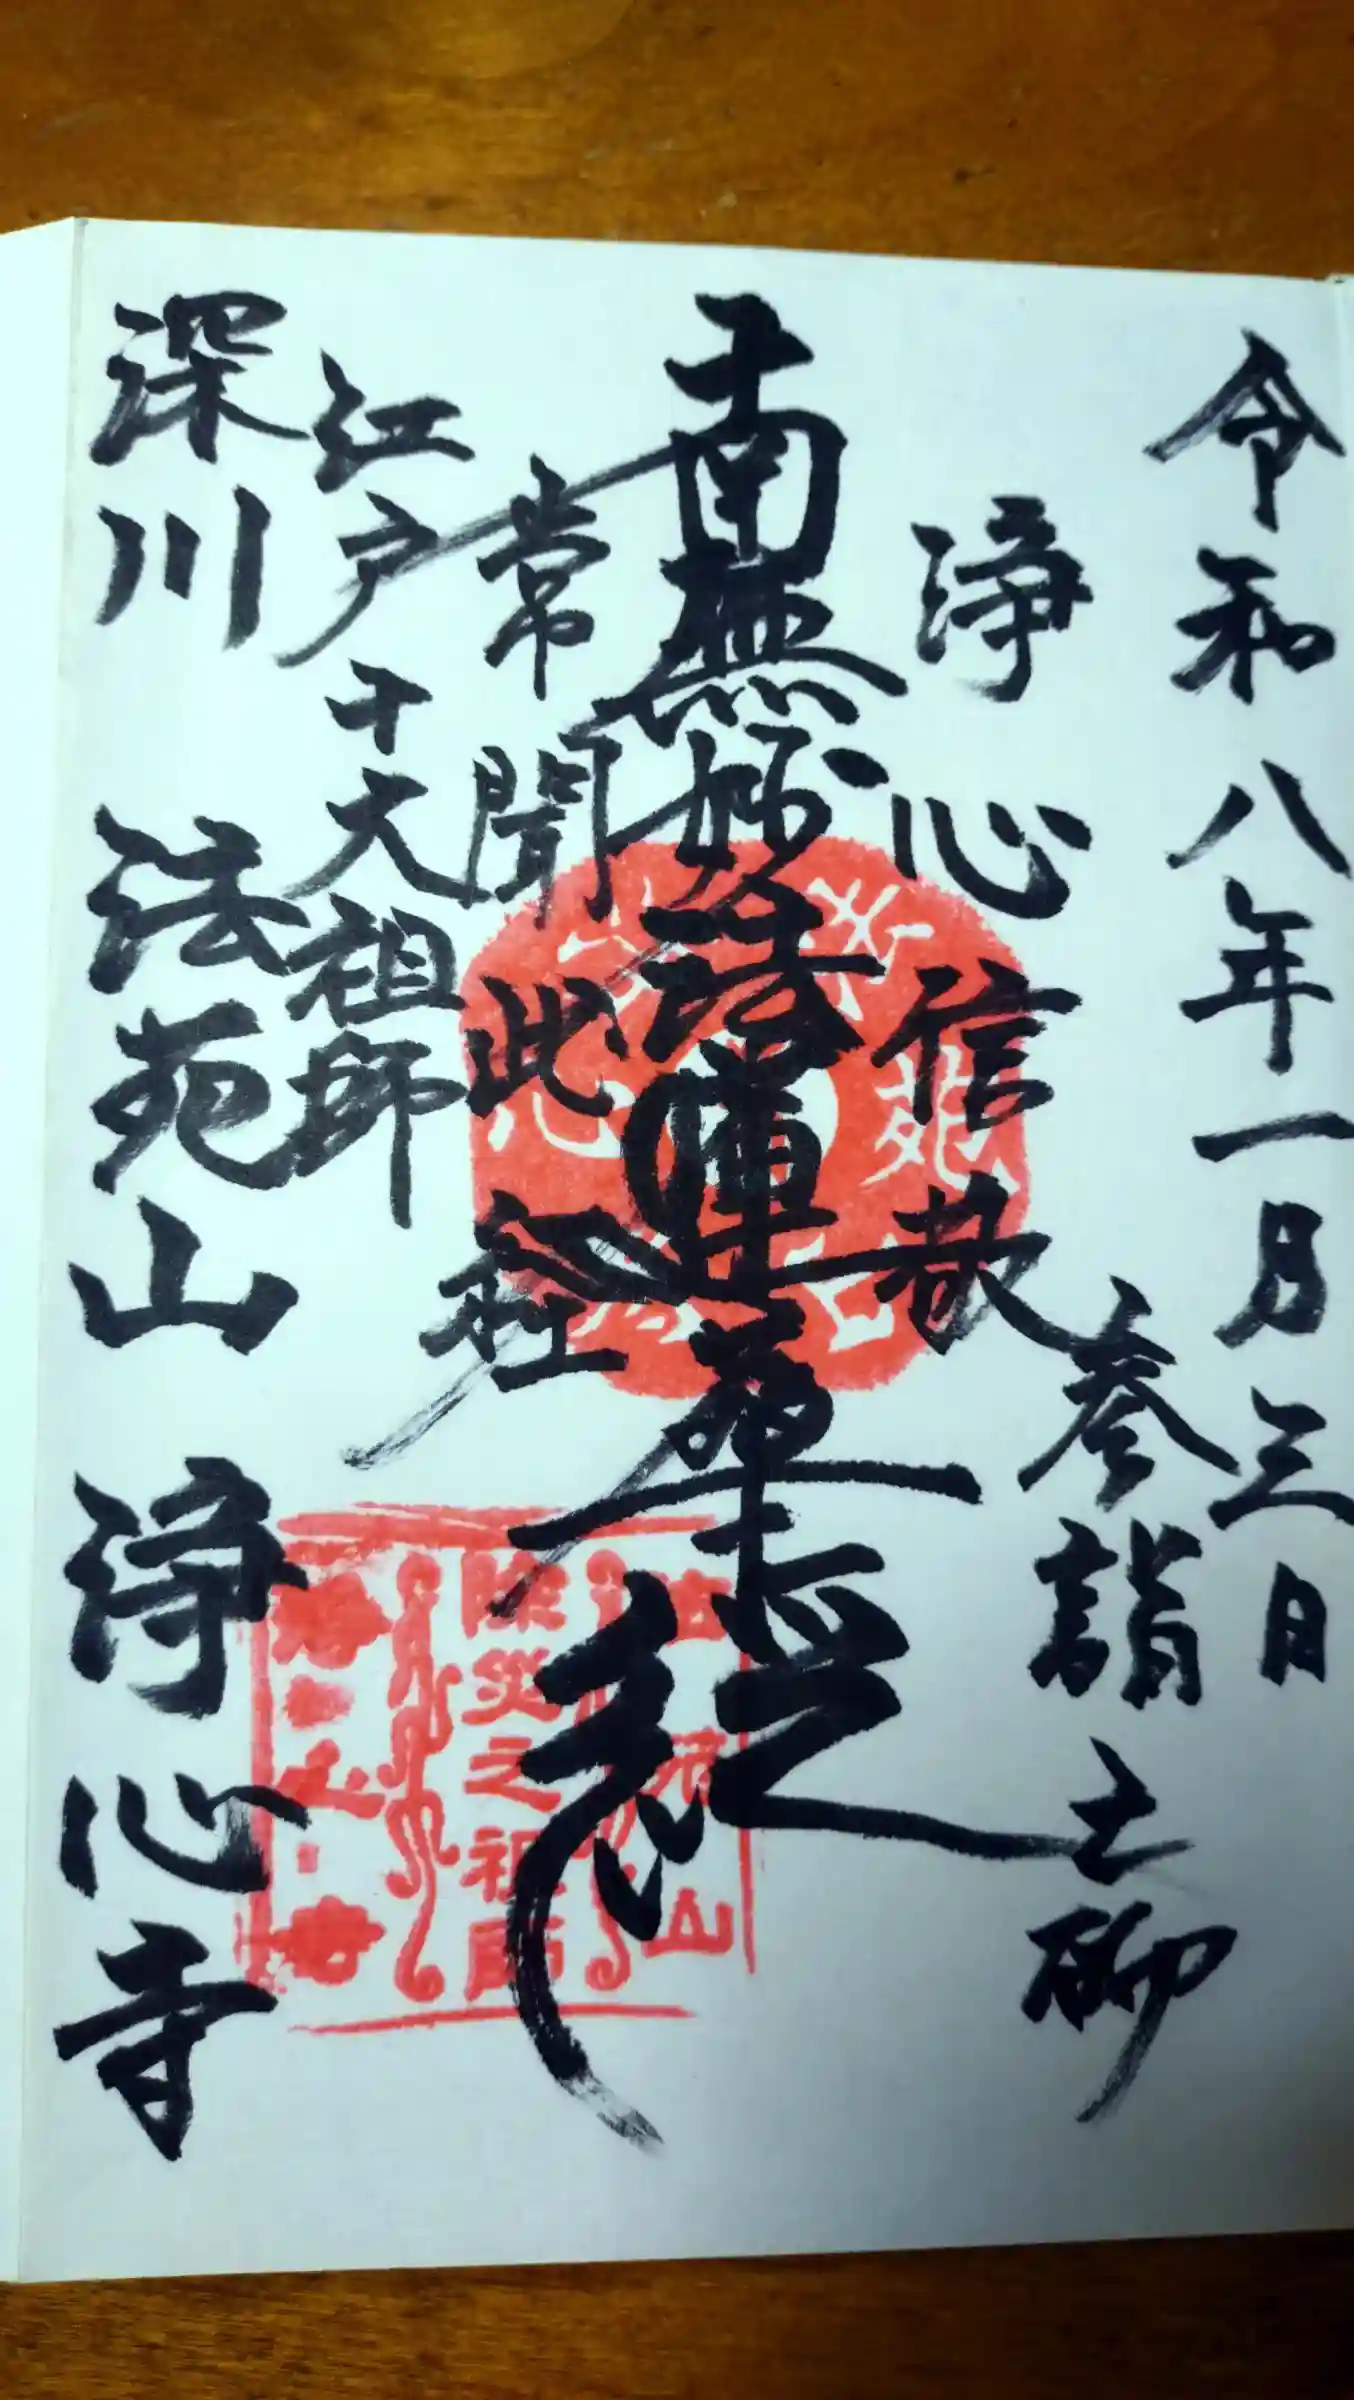 令和八年一月三日
参詣之砌
浄心信敬
南無妙法蓮華経
常聞此経
江戸十大祖師
深川 法苑山 浄心寺
除災之祖師